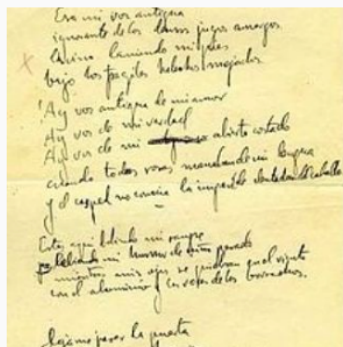 Era mi voz antigua
ignorante de los densos jugos amargos
lamiendo mis pies
bajo los fragiles helechos mojados
¡Ay voz antigua de mi amor
Ay voz de mi verdad
Ay voz de mi abierto costado
cuando todas rosas manaban de mi lengua
y el cesped no conocia la impasible dentadura del caballo
Estás aqui bebiendo mi sangre
bebiendo mi humor de niño pasado
mientras mis ojos se quiebran en el viento
con el aluminio y las voces de los borrachos.
Dejame pasar la puerta